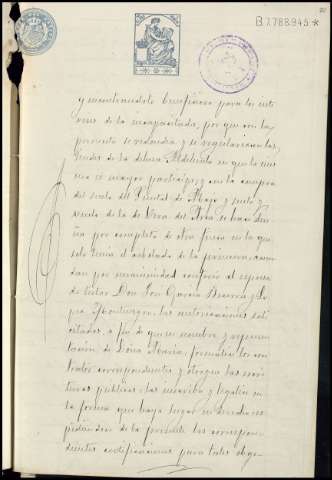 B7788945*
y manteniendolo beneficioso para los inte-
reses de la incapacitada, por que con la
permuta se redondea y se regularizan las
fincas de la dehesa Aldehuela en que la mis-
ma es mayor partícipe, y con la compra
del suelo del Quintal de Mayo y suelo y
vuelo de la de Cerca del Arca se hace due-
ña por completo de otra finca en la que
solo tenía el arbolado de la primera, acuer-
dan por unanimidad conferir al esposo
de tutor Don José García Becerra y Lo-
pez Montenegro, las autorizaciones soli-
citadas, a fin de que en nombre y represen-
tación de Doña María, formalice los con-
tratos correspondientes y otorgue las escri-
turas públicas, las inscriba y legalice en
la forma que haya lugar en derecho, ex-
pidiéndose de la presente las correspon-
dientes certificaciones para tales obje-